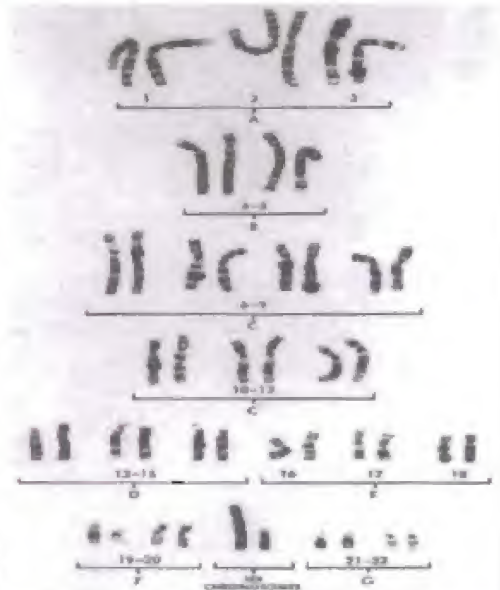 1 2 3
A
4-5
B
6-9
C
10-12
C
13-15 16 17 18
D E
19-20 21-22
F CHROMOSOMES G